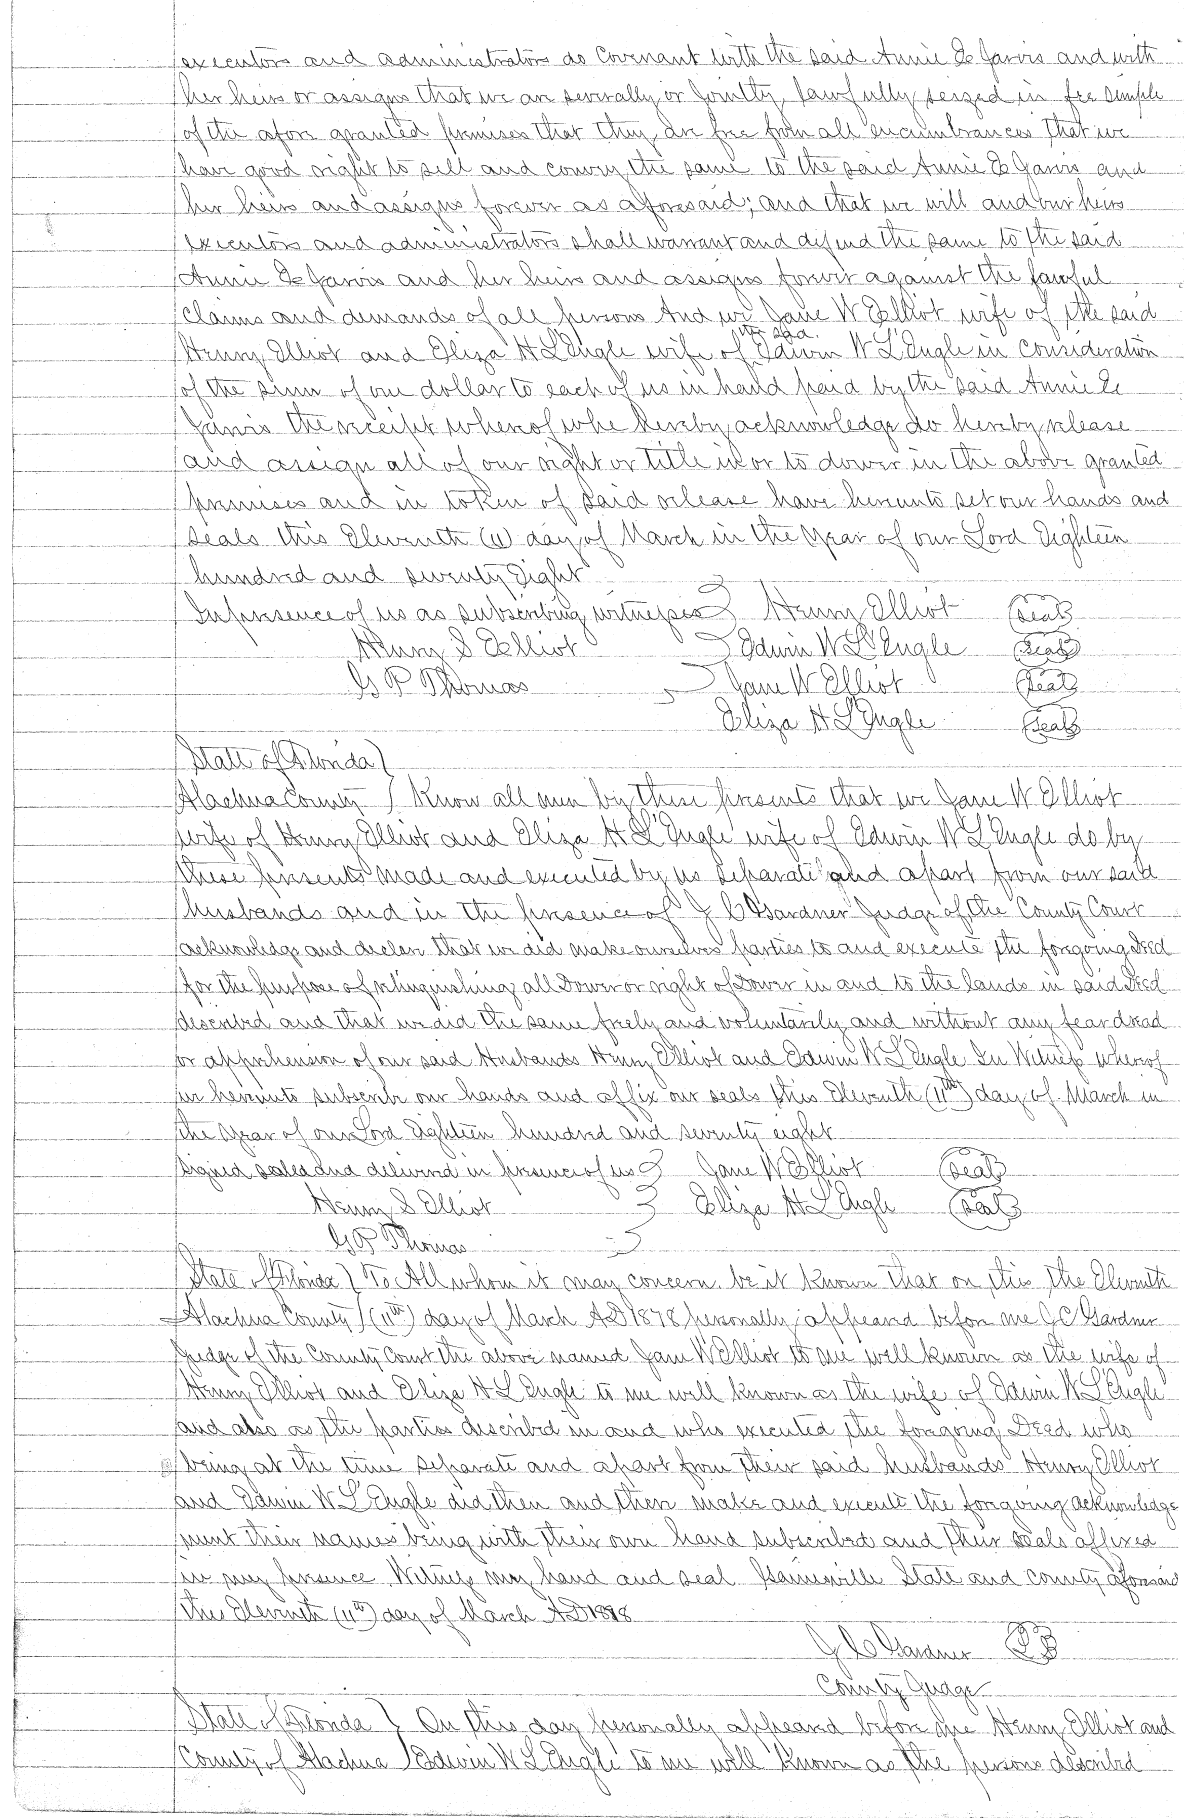 executors and administrators do Covenant with the said Annie E Jarvis and with
her heirs or assigns that we are severally or jointly, lawfully seized in fee simple
of the afore granted premises that they are free from all encumbrances that we
have good right to sell and convey the same to the said Annie E Jarvis and
her heirs and assigns forever as aforesaid; and that we will and our heirs
executors and administrators shall warrant and defend the same to the said
Annie E Jarvis and her heirs and assigns forever against the lawful
claims and demands of all persons And we Jane W Elliot wife of the said
Henry Elliot and Eliza H L'Engle wife of the said Edwin W L'Engle in consideration
of the sum of one dollar to each of us in hand paid by the said Annie E
Jarvis the receipt whereof whe hereby acknowledge do hereby release
and assign all of our right or title in or to dower in the above granted
premises and in token of said release have hereunto set our hands and
seals this Eleventh (11) day of March in the year of our Lord Eighteen
hundred and seventy Eight
In presence of us as subscribing witnesses } Henry Elliot (seal)
Henry S Elliot } Edwin W L'Engle (seal)
G P Thomas } Jane W Elliot (seal)
Eliza H L'Engle (seal)
State of Florida }
Alachua County } Know all men by these presents that we Jane W Elliot
wife of Henry Elliot and Eliza H L'Engle wife of Edwin W L'Engle do by
these presents made and executed by us separate and apart from our said
husbands and in the presence of J C Gardner Judge of the County Court
acknowledge and declare that we did make ourselves parties to and execute the foregoing Deed
for the purpose of relinquishing all Dower or right of Dower in and to the lands in said Deed
described and that we did the same freely and voluntarily and without any fear dread
or apprehension of our said Husbands Henry Elliot and Edwin W L'Engle In Witness whereof
we hereunto subscribe our hands and affix our seals this Eleventh (11th) day of March in
the year of our Lord Eighteen hundred and seventy eight
Signed sealed and delivered in presence of us } Jane W Elliot (seal)
Henry S Elliot } Eliza H L'Engle (seal)
G P Thomas }
State of Florida } To All whom it may concern be it known that on this the Eleventh
Alachua County } (11th) day of March AD 1878 personally appeared before me J C Gardner
Judge of the County Court the above named Jane W Elliot to me well known as the wife of
Henry Elliot and Eliza H L'Engle to me well known as the wife of Edwin W L'Engle
and also as the parties described in and who executed the foregoing Deed who
being at the time separate and apart from their said husbands Henry Elliot
and Edwin W L'Engle did then and there make and execute the forgoing acknowledge
ment their names being with their own hand subscribed and their seals affixed
in my presence. Witness my hand and seal Gainesville State and county aforesaid
this Eleventh (11th) day of March AD 1878
J C Gardner
County Judge
State of Florida } On this day personally appeared before me Henry Elliot and
County of Alachua } Edwin W L'Engle to me well known as the persons described